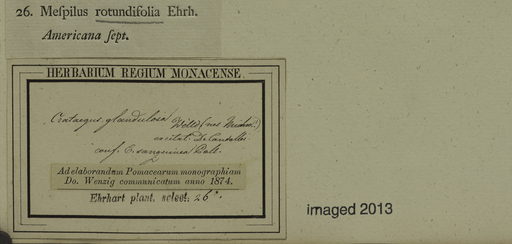 26. Meſpilus rotundifolia Ehrh.
Americana ſept.
HERBARIUM REGIUM MONACENSE.
Crataegus glandulosa Willd (nec Michx.)
excitat. De Candolle.
conf. C. sanguinea Pall.
Ad elaborandum Pomacearum monographiam
Do. Wenzig communicatum anno 1874.
Ehrhart plant. select. 26.
imaged 2013